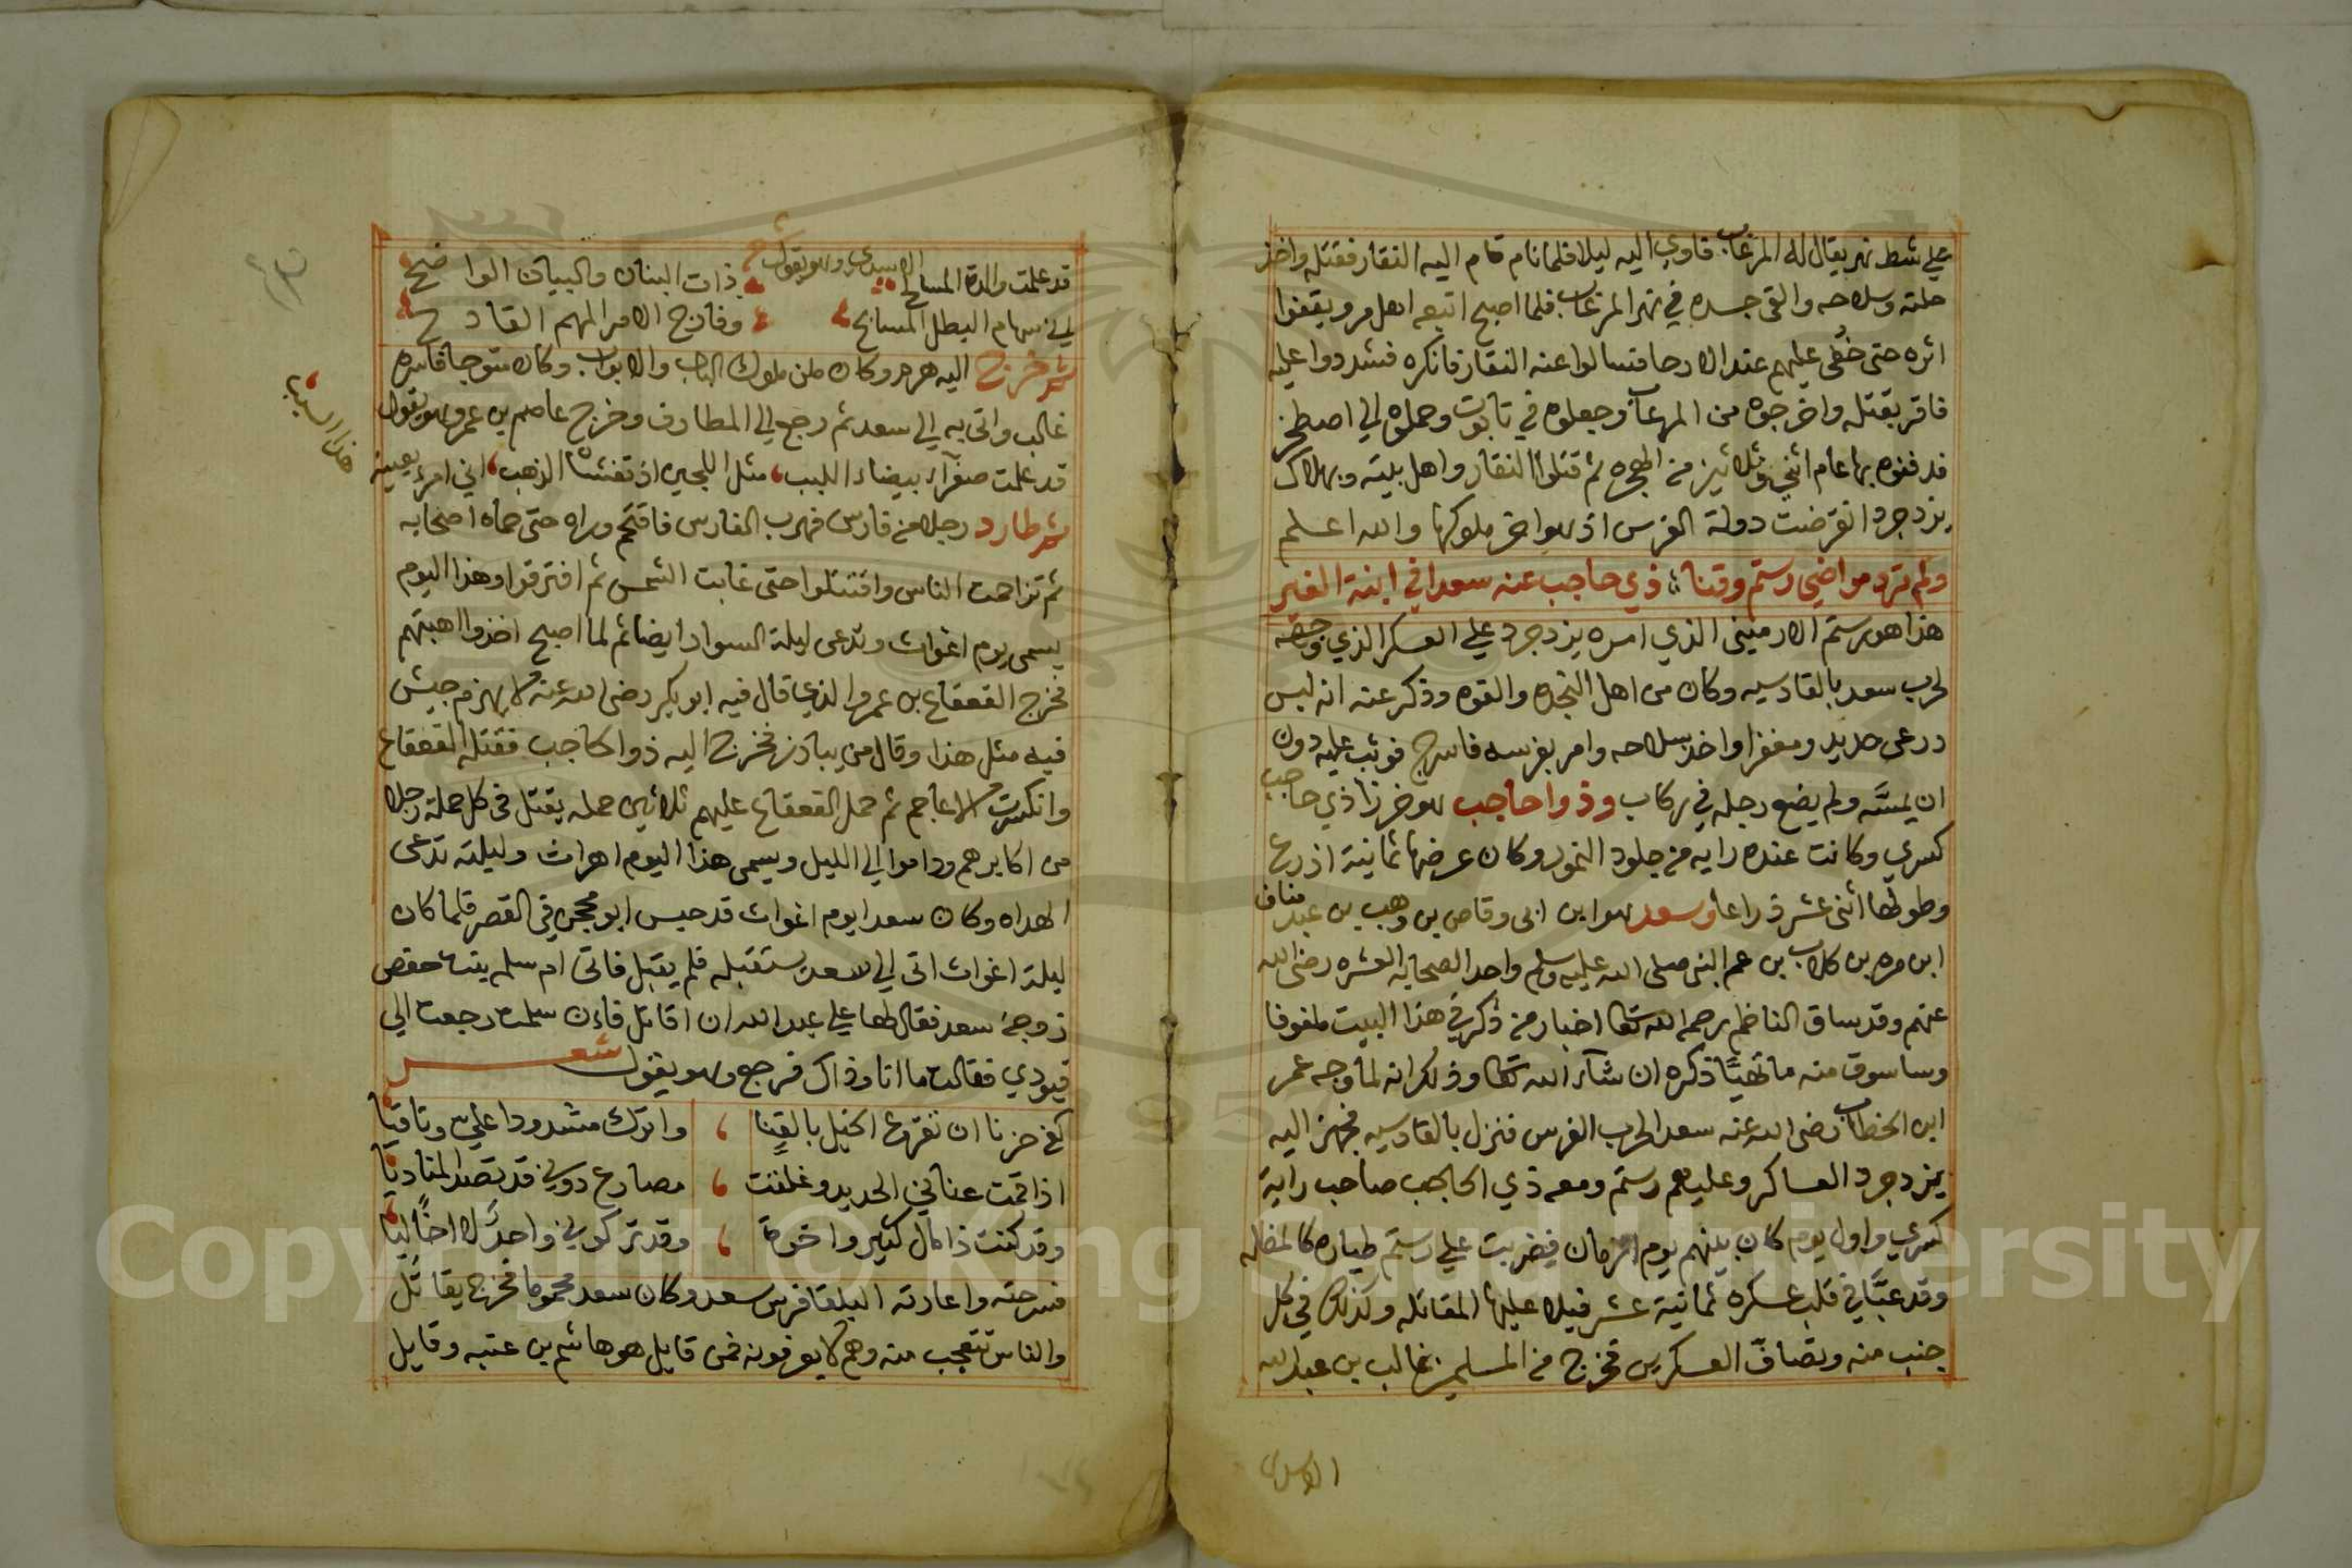 علي شط نهر يقال له المرغاب فاوي اليه ليلا فلما نام قام اليه النقار فقتله واخذ
حلته وسلاحه والقى جسده في نهر المرغاب فلما اصبح اتبعه اهل مرو يقفوا
اثره حتى خفى عليهم عند الارحا فسالوا عنه النقار فانكره فشددوا عليه
فاقر بقتله واخرجوه من المرغاب وجعلوه في تابوت وحملوه الي اصطخر
فدفنوه بها عام اثني وثلاثين من الهجره ثم قتلوا النقار واهل بيته وبهلاك
يزدجرد انقرضت دولة الفرس اذ هو اخر ملوكها والله اعلم
ولم ترد مواضي رستم وقنا ذي حاجب عنه سعدا في ابنة الغير
هذا هو رستم الارمينى الذي امره يزدجرد علي العسكر الذي وجهه
لحرب سعد بالقادسيه وكان من اهل النجده والقوه وذكر عنه انه لبس
درعى حديد ومغفرا واخذ سلاحه وامر بفرسه فاسرج فوثب عليه دون
ان يمسه ولم يضع رجله في ركاب وذوا حاجب هو خرزاذي حاجب
كسري وكانت عنده رايه من جلود النمور وكان عرضها ثمانية اذرع
وطولها اثنى عشر ذراعا وسعد هو ابن ابى وقاص بن وهب بن عبد مناف
ابن مره بن كلاب بن عم النبى صلى الله عليه وسلم واحد الصحابه العشره رضى الله
عنهم وقد ساق الناظم رحمه الله تعالى اخبار من ذكر في هذا البيت ملفوفا
وساسوق منه ما تهيا ذكره ان شاء الله تعالى وذلك انه لما وجه عمر
ابن الخطاب رضى الله عنه سعدا لحرب الفرس فنزل بالقادسيه فجهز اليه
يزدجرد العساكر وعليهم رستم ومعه ذي الحاجب صاحب راية
كسري واول يوم كان بينهم يوم فضربت علي رستم طياره كالمظله
وقد عبا في قلب عسكره ثمانية عشر فيلا عليها المقاتله وكذلك في كل
جنب منه وتصاف العسكرين فخرج من المسلمين غالب بن عبد الله
الاسدى
الاسدى وهو يقول
قد علمت والدة المسالح ذات البنان والبيان الواضح
اني سهام البطل المسابح وفارج الامر المهم القادح
ثم خرج اليه هرمز وكان من ملوك الباب والابواب وكان متوجا فاسره
غالب واتى به الي سعد ثم رجع الي المطارف وخرج عاصم بن عمرو وهو يقول
قد علمت صفراء بيضاء اللبب مثل اللجين اذ تغشاه الذهب اني امرء يعيبه
هذا السبب
ثم طارد رجلا من فارس فهرب الفارس فاقتحم وراه حتى حماه اصحابه
ثم تزاحمت الناس واقتتلوا حتى غابت الشمس ثم افترقوا وهذا اليوم
يسمى يوم اغواث وتدعى ليلة السواد ايضا ثم لما اصبح اخذوا اهبتهم
فخرج القعقاع بن عمرو الذي قال فيه ابو بكر رضى الله عنه لا يهزم جيش
فيه مثل هذا وقال من يبارز فخرج اليه ذوا الحاجب فقتله القعقاع
وانكسرت الاعاجم ثم حمل القعقاع عليهم ثلاثين حمله يقتل فى كل حملة رجلا
من اكابرهم وداموا الي الليل ويسمى هذا اليوم اهراث وليلته تدعى
الهداه وكان سعدا يوم اغواث قد حبس ابو محجن في القصر فلما كان
ليلة اغواث اتى الي سعد يستقبله فلم يقبل فاتى ام سلمه بنت حفص
زوجة سعد فقال لها علي عبد الله ان اقاتل فاءن سلمت رجعت الي
قيودي فقالت ما انا وذاك فرجع وهو يقول شعر
كفى حزنا ان تقرع الخيل بالقنا واترك مشدودا علي وثاقيا
اذا قمت عناني الحديد وغلقت مصارع دوني قد تصد المناديا
وقد كنت ذا مال كثير واخوة وقد تركوني واحدا لا اخا ليا
فسرحته واعارته البلقا فرس سعد وكان سعد محموما فخرج يقاتل
والناس تتعجب منه وهم لا يعرفونه فمن قايل هو هاشم بن عتبه وقايل
Copyright © King Saud University
1957